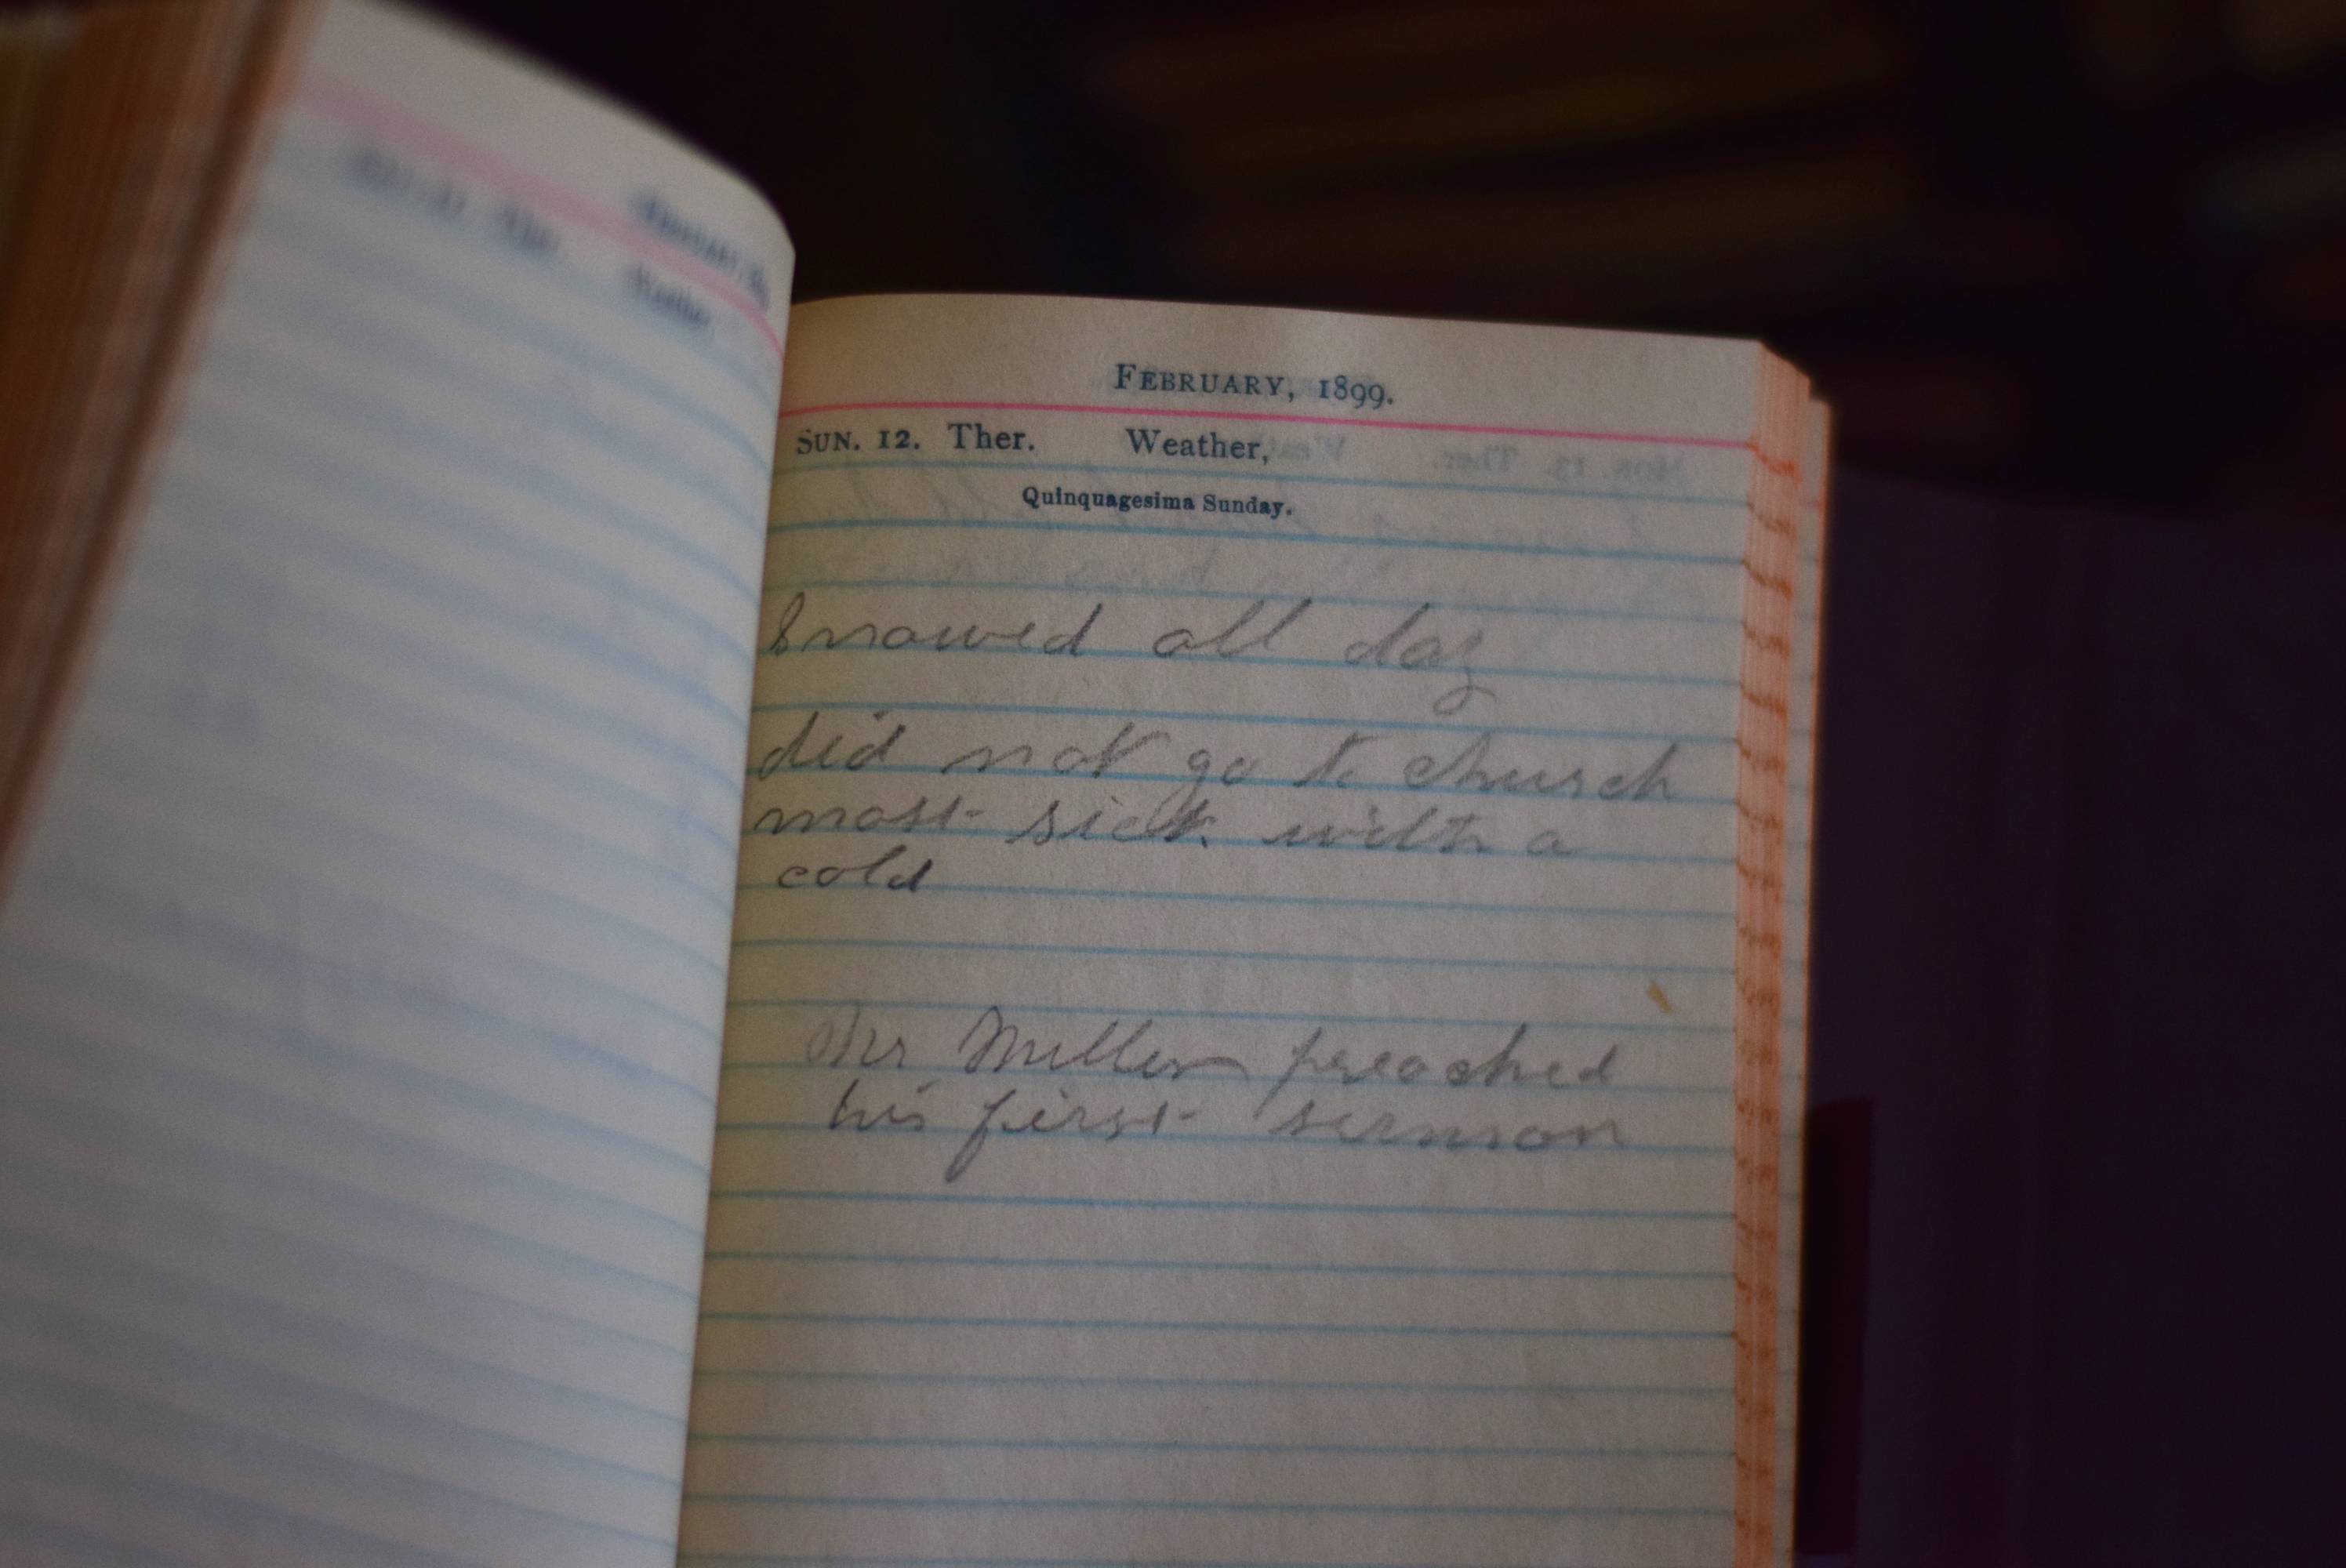 FEBRUARY, 1899.
SUN. 12. Ther. Weather,
Quinquagesima Sunday.
Snowed all day
did not go to church
most sick with a
cold
Mr Miller preached
his first sermon